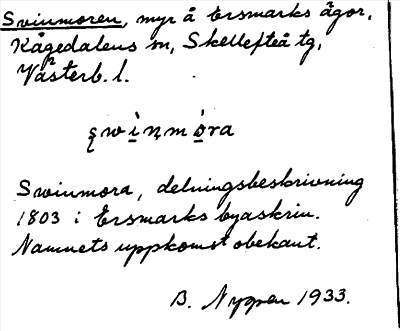 Svinmoren, myr å Ersmarks ägor,
Kågedalens sn, Skellefteå tg,
Västerb. l.
swinmora
Svinmora, delningsbeskrivning
1803 i Ersmarks byaskrin.
Namnets uppkomst obekant.
B. 1933.